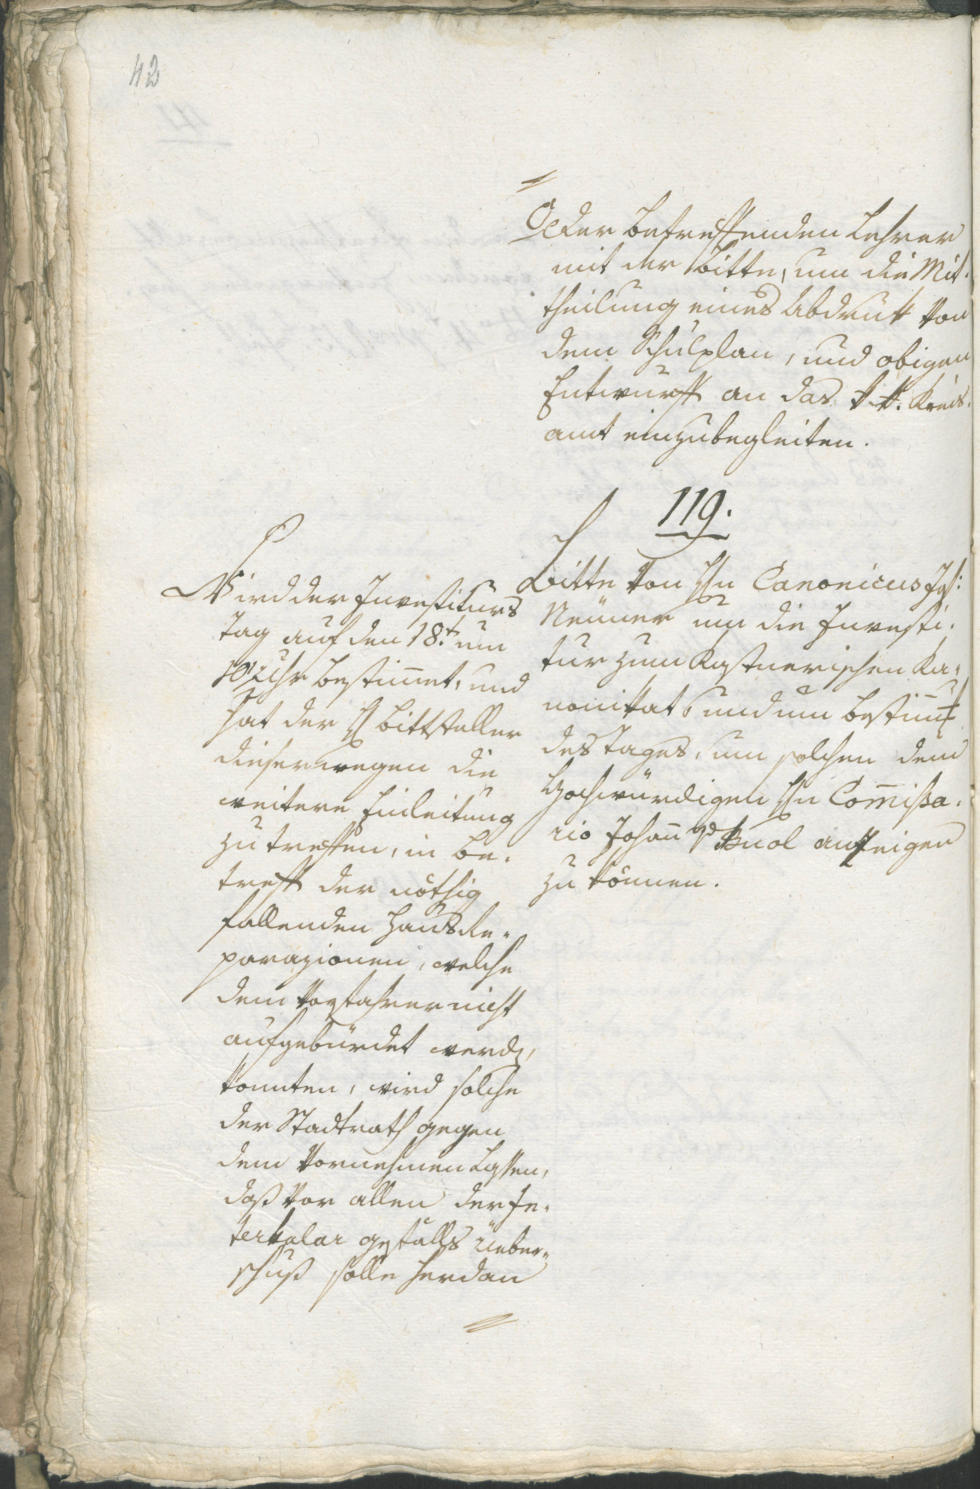 42
der betreffenden Lehrer
mit der Bitte, um die Mit-
theilung eines Abdruk von
dem Schulplan, und obigen
Entwurff an das k. k. Kreis-
amt einzubegleiten.
119.
Bitte von Hn Canonicus Jos:
Neuner um die Investi-
tur zum Kastnerischen Ka-
nonikat, und um Bestimt
des Tages, um solchen dem
Hochwürdigen Hn Commißa-
rio Johann v Buol anzeigen
zu können.
Wird der Investiturs
Tag auf den 18t um
10 Uhr bestimmet, und
hat der H Bittsteller
dieserwegen die
weitere Einleitung
zu treffen, in be-
treff der nöthig
fallenden Hausre-
parazionen, welche
dem Vorfahrer nicht
aufgebürdet werden
konnten, wird solche
der Stadtrath gegen
dem vornehmen lassen,
daß vor allen der In-
terkalar gefälls Ueber-
schuß solle hierdan